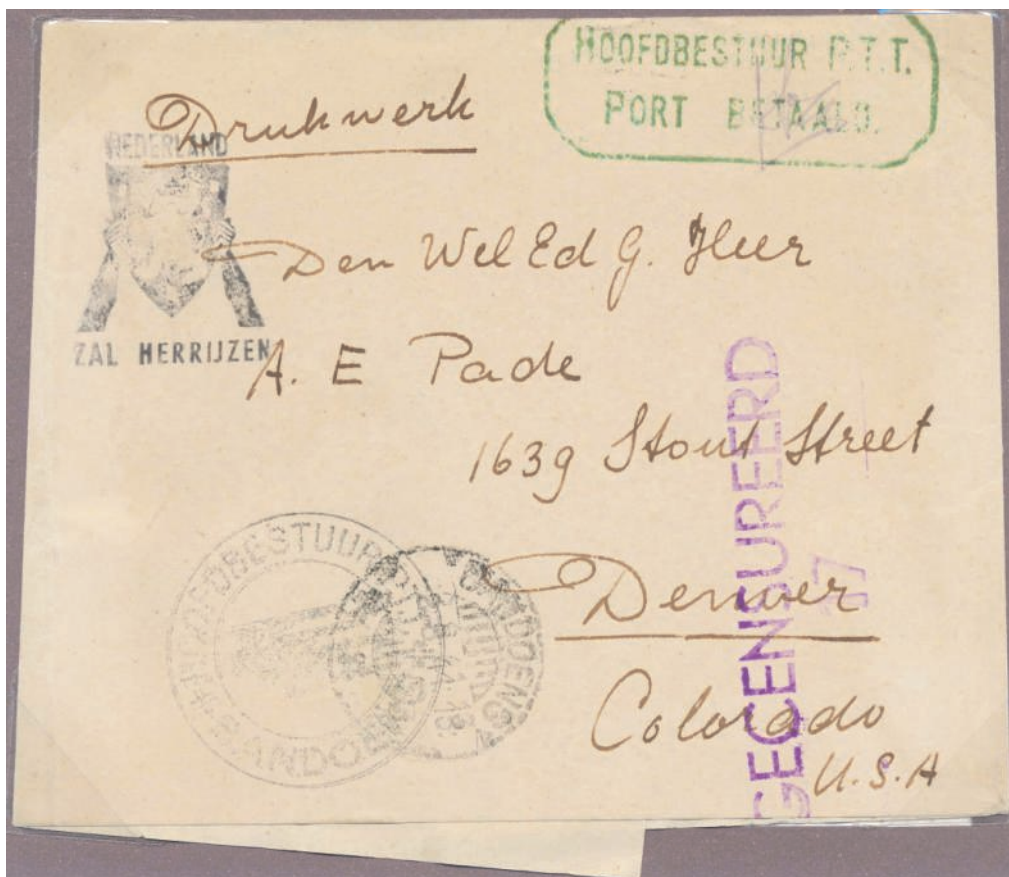 HOOFDBESTUUR P.T.T.
PORT BETAALD.
Drukwerk
NEDERLAND
ZAL HERRIJZEN
Den Wel Ed G. Heer
A. E Pade
1639 Stout Street
Denver
Colorado
U.S.A
GECENSUREERD
17
HOOFDBESTUUR P.T.T.
BANDOENG
BANDOENG